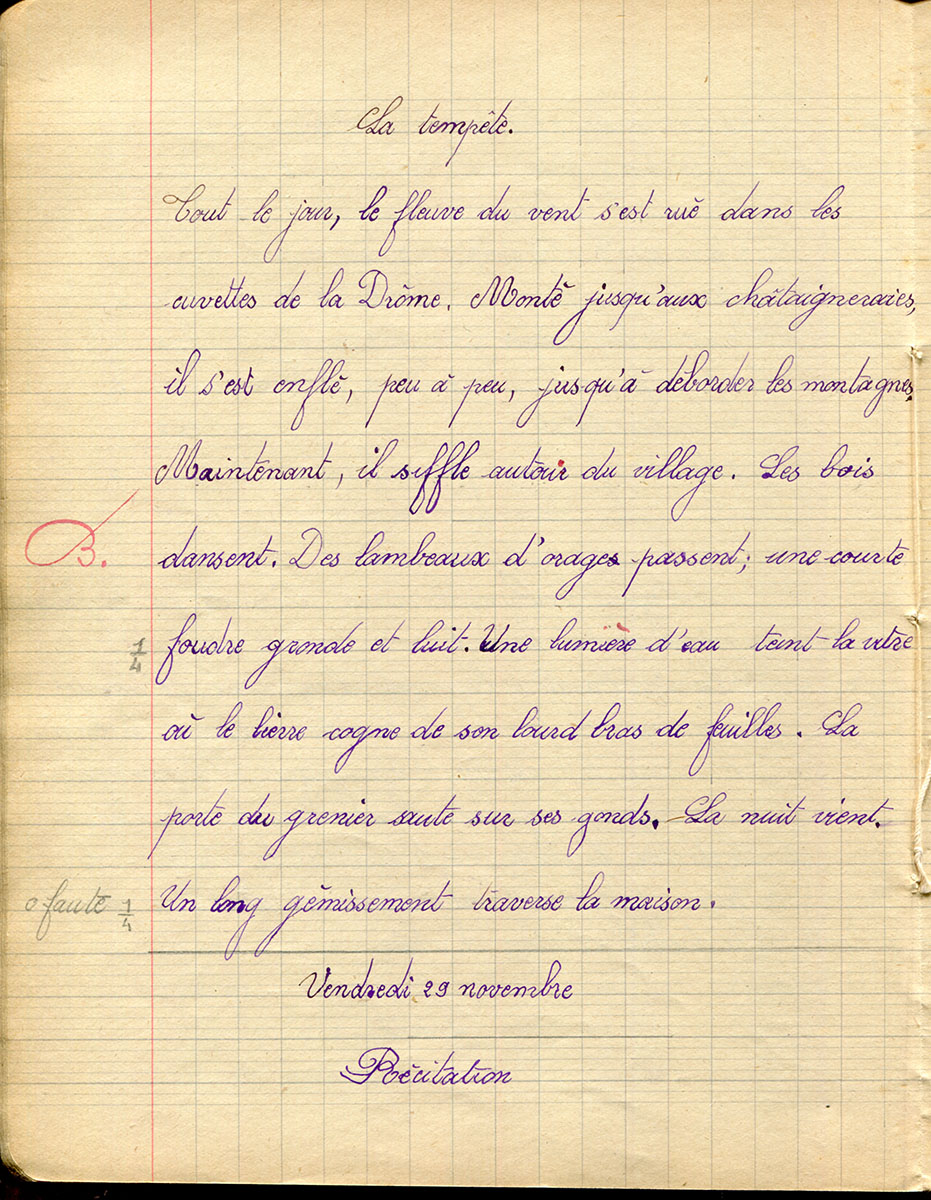 La tempête.
Tout le jour, le fleuve du vent s'est rué dans les
cuvettes de la Drôme. Monté jusqu'aux châtaigneraies,
il s'est enflé, peu à peu, jusqu'à déborder les montagnes.
Maintenant, il siffle autour du village. Les bois
B.
dansent. Des lambeaux d'orages passent ; une courte
1/4 foudre gronde et luit. Une lumière d'eau teint la vitre
où le lierre cogne de son lourd bras de feuilles. La
porte du grenier saute sur ses gonds. La nuit vient.
0 faute 1/4 Un long gémissement traverse la maison.
Vendredi 29 novembre
Récitation